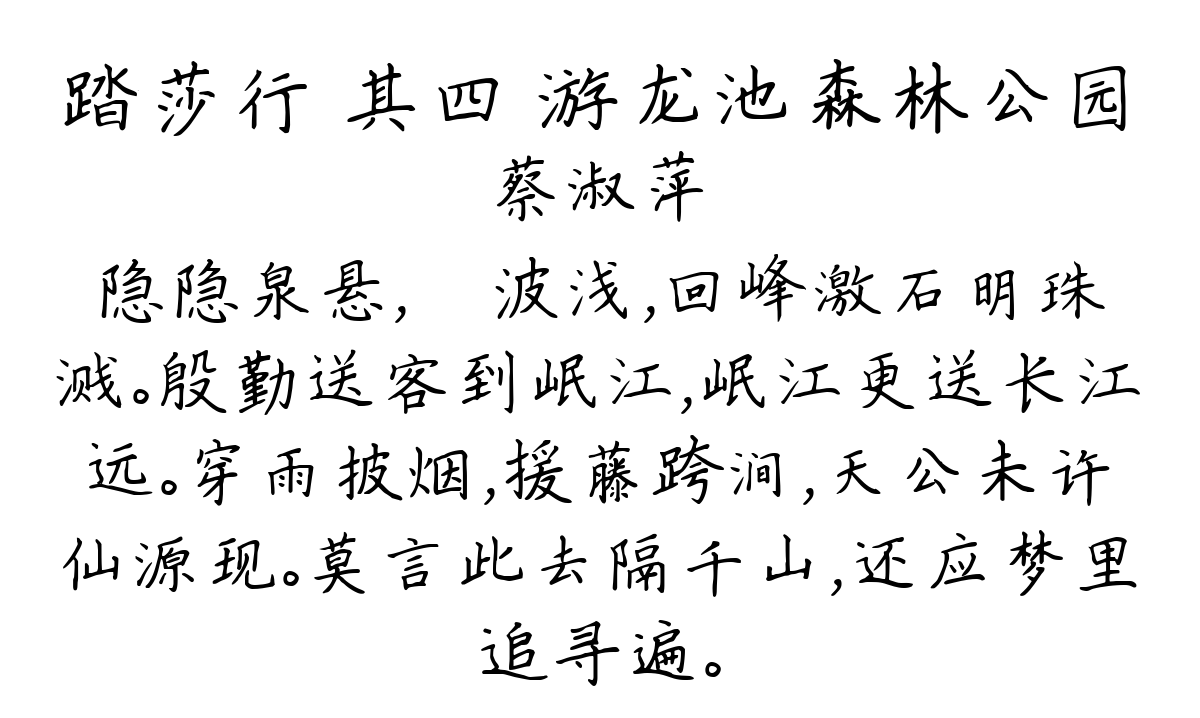 踏莎行 其四 游龙池森林公园
蔡淑萍
隐隐泉悬, 波浅,回峰激石明珠
溅。殷勤送客到岷江,岷江更送长江
远。穿雨披烟,援藤跨涧,天公未许
仙源现。莫言此去隔千山,还应梦里
追寻遍。